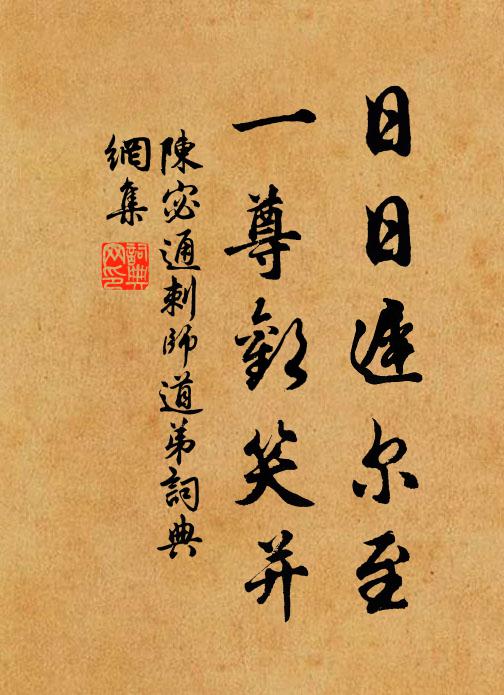 日日遲尔至
一尊歡笑并
陳宓通剌師道弟詞典
網集
詞典網印